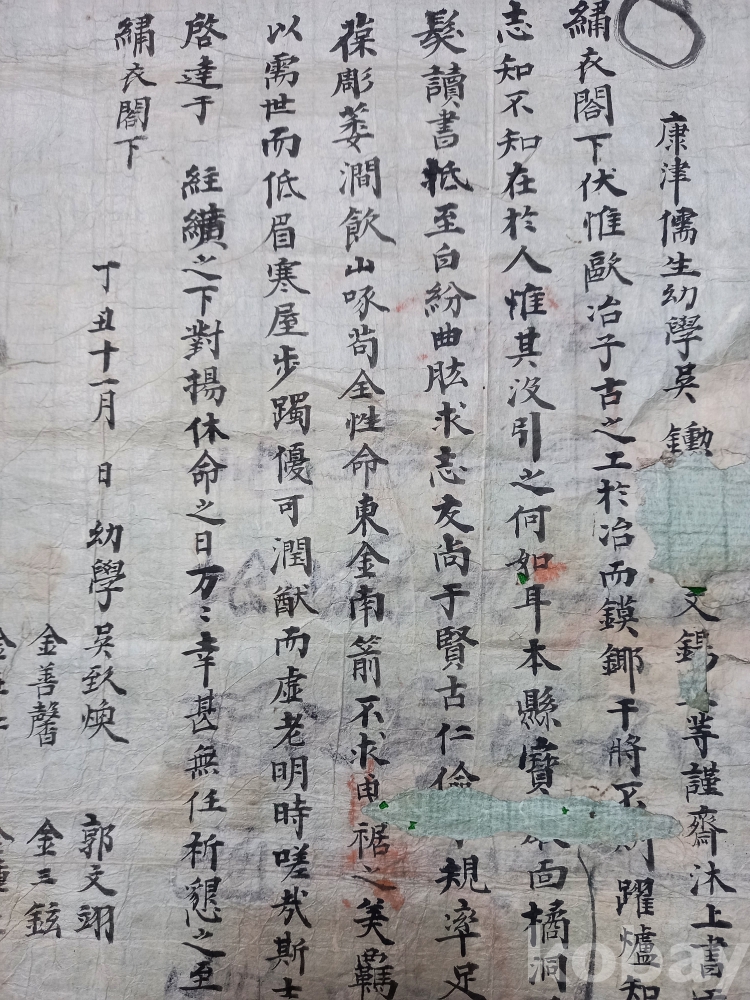 康津儒生幼學吳 文錫 等謹齋沐上書
繡衣閣下伏惟歐冶子古之工於冶而鏌鎁干將不 躍爐知
志知不知在於人惟其汲引之何如耳本縣寶 面橘洞
髮讀書抵至白紛曲肱求志友尚于賢古仁 規率足
葆彫蔞澗飮山啄苟全性命東金南箭不求 裾之美羈
以需世而低眉寒屋步躅優可潤猷而虛老明時嗟哉斯士
啓達于 絓纊之下對揚休命之日万〻幸甚無任祈懇之至
繡衣閣下
丁丑十一月 日 幼學 吳致煥 郭文翊
金善馨 金三鉉
金
kobay